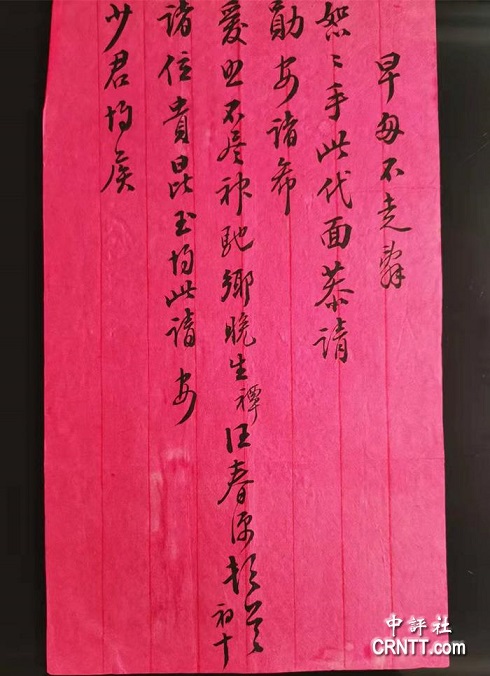 早每不走辞
恕〻手此代面恭請
勛安諸希
愛照不盡神馳鄉晚生禫汪春源頓首
初十
諸位貴昆玉均此請安
少君均侯
中評社
CRNTT.com